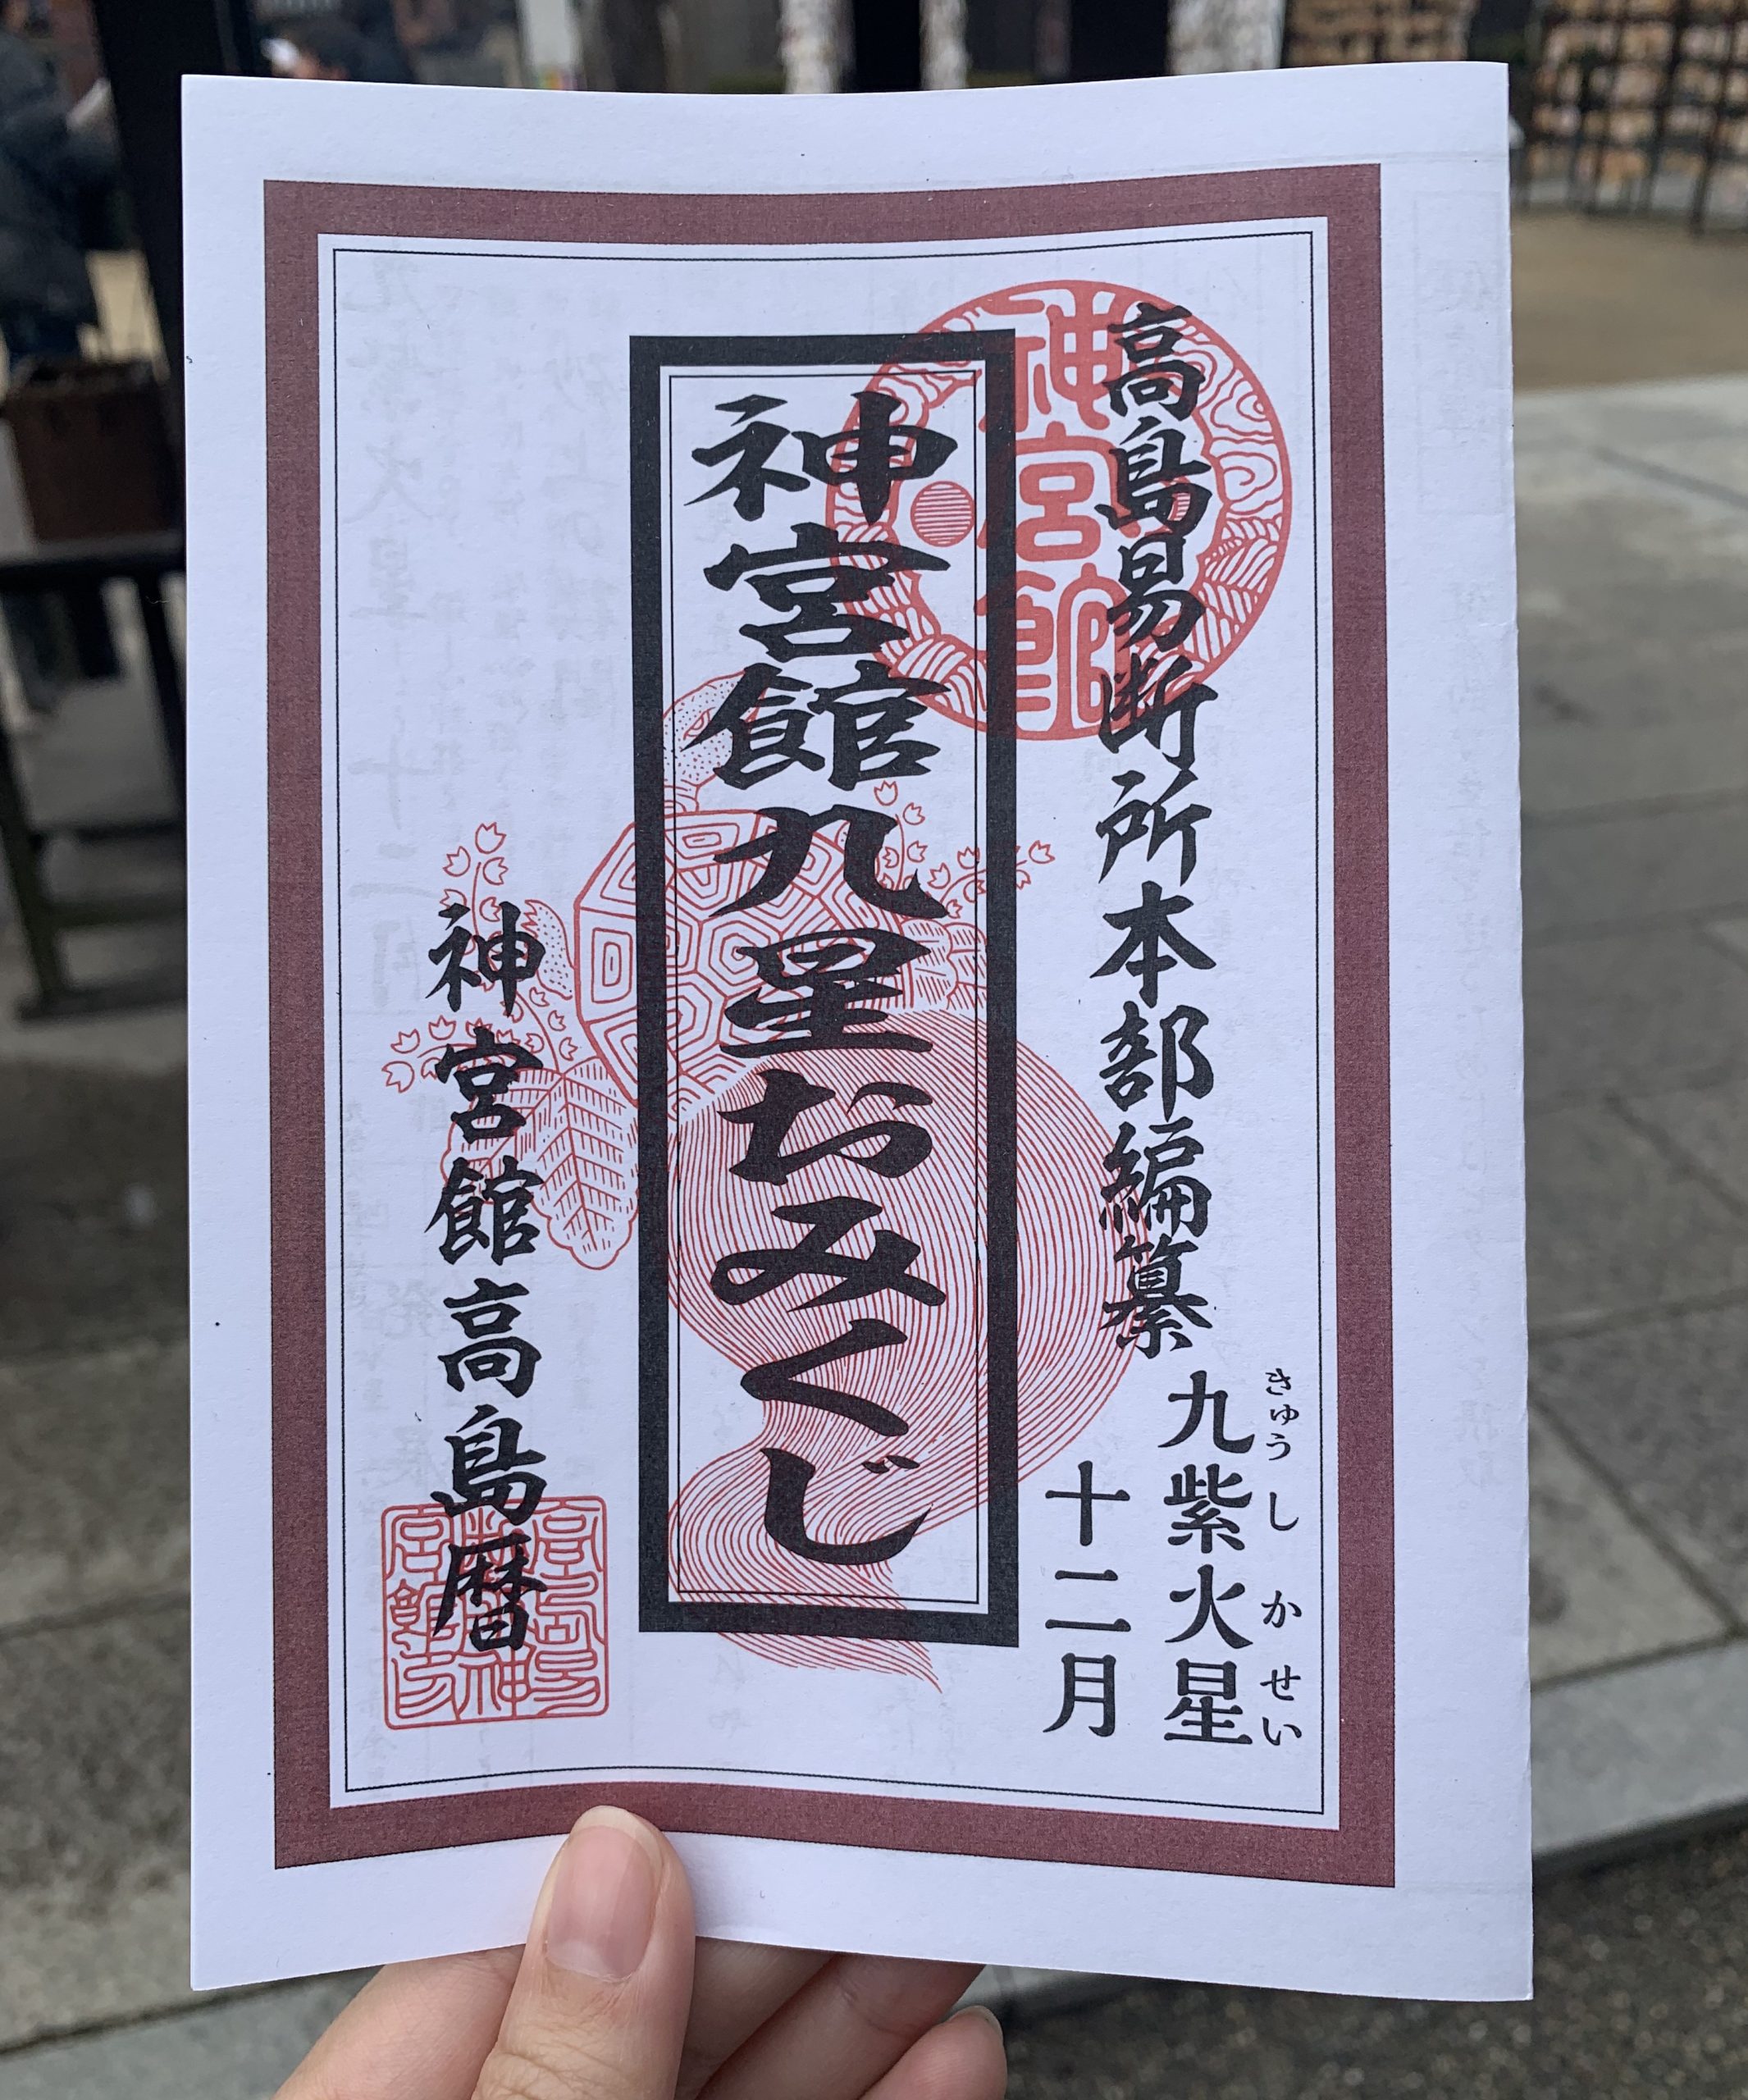 高島易断所本部編纂
九紫火星
きゅうしかせい
十二月
神宮館九星おみくじ
神宮館高島暦
神宮館